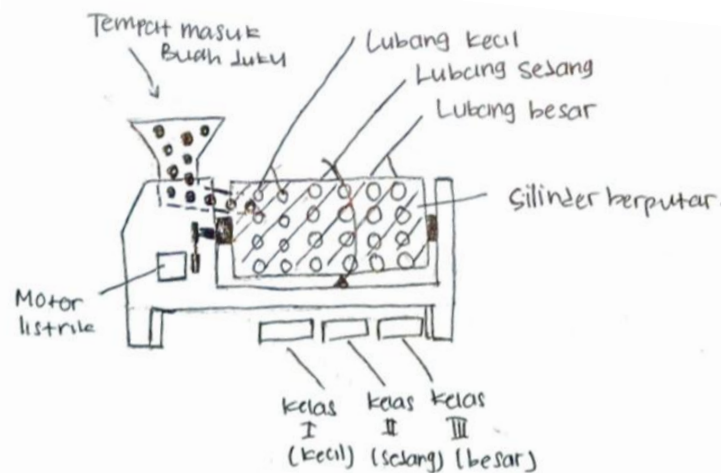 Tempat masuk
Buah duku
Lubang kecil
Lubang sedang
Lubang besar
Silinder berputar.
Motor
listrik
kelas
I
(kecil)
kelas
II
(sedang)
kelas
III
(besar)